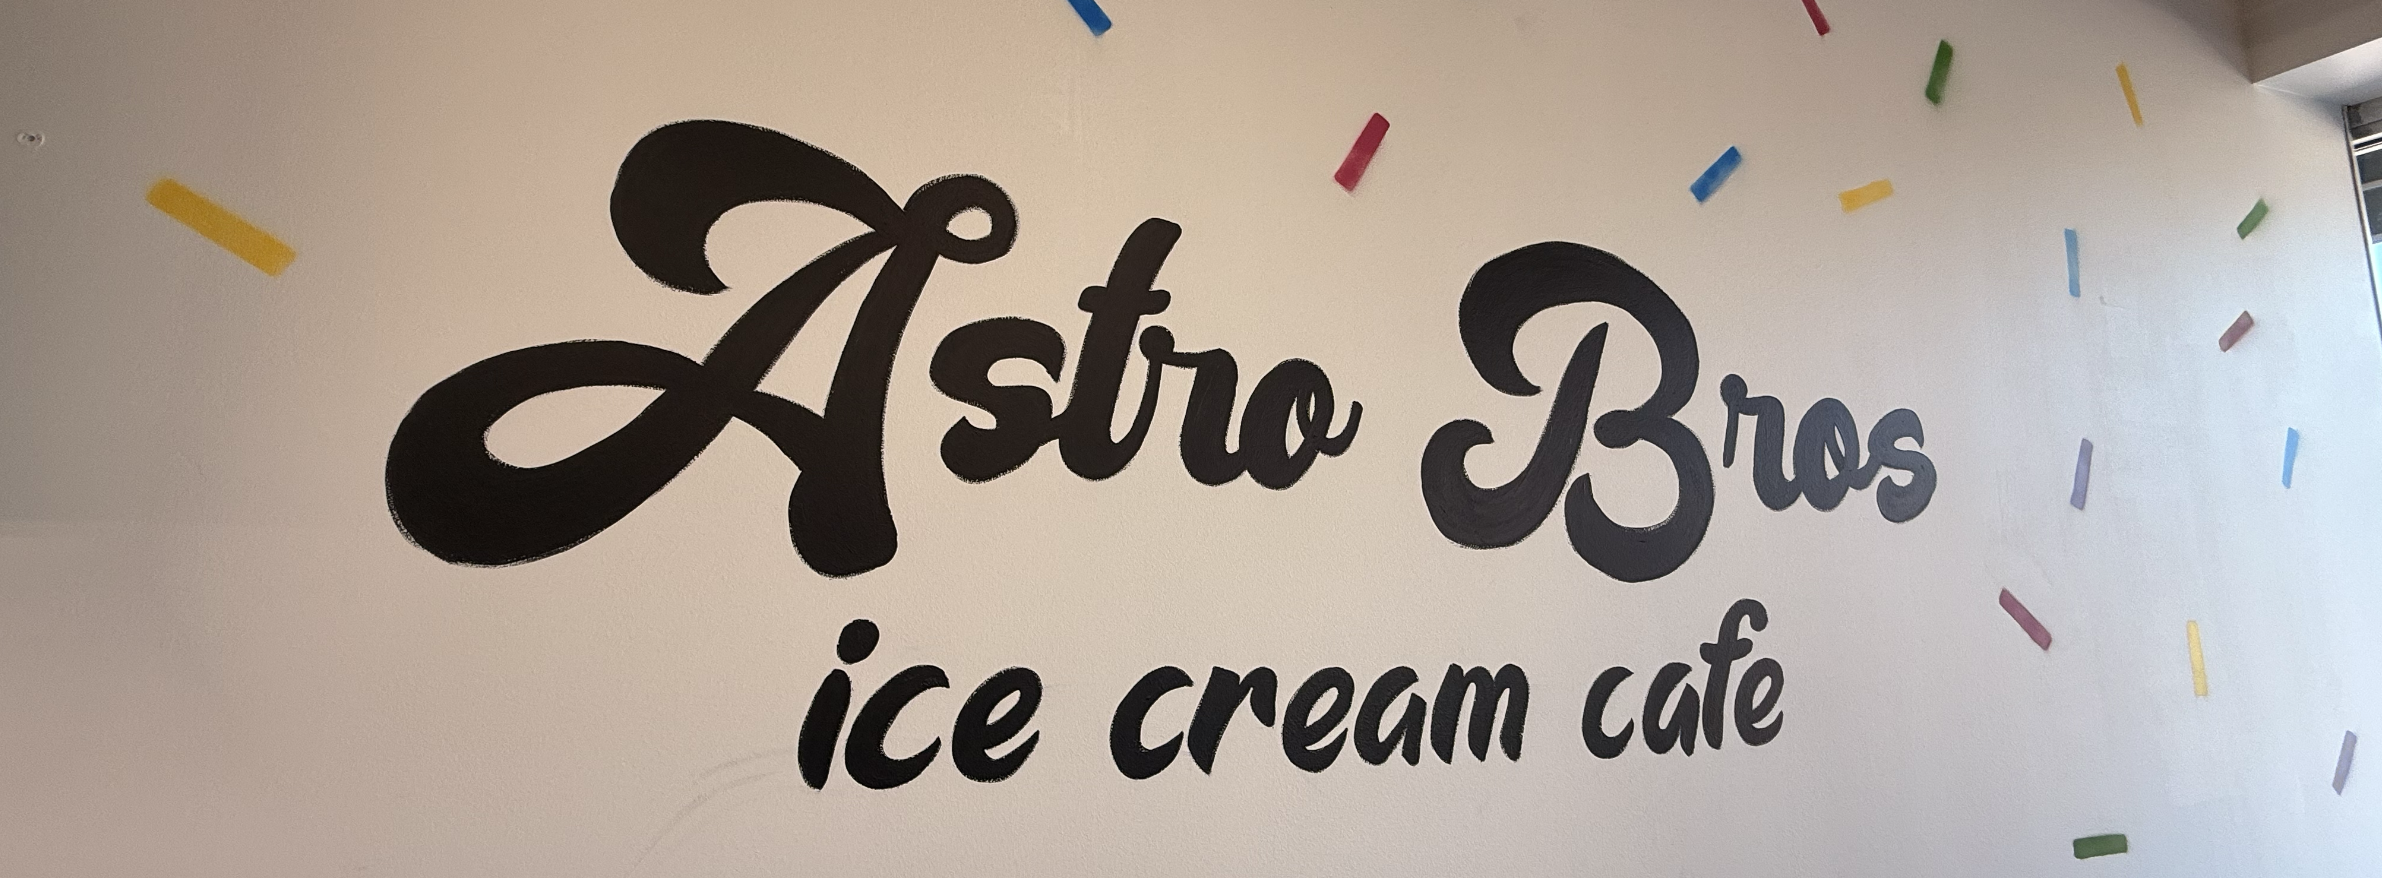 Astro Bros
ice cream cafe